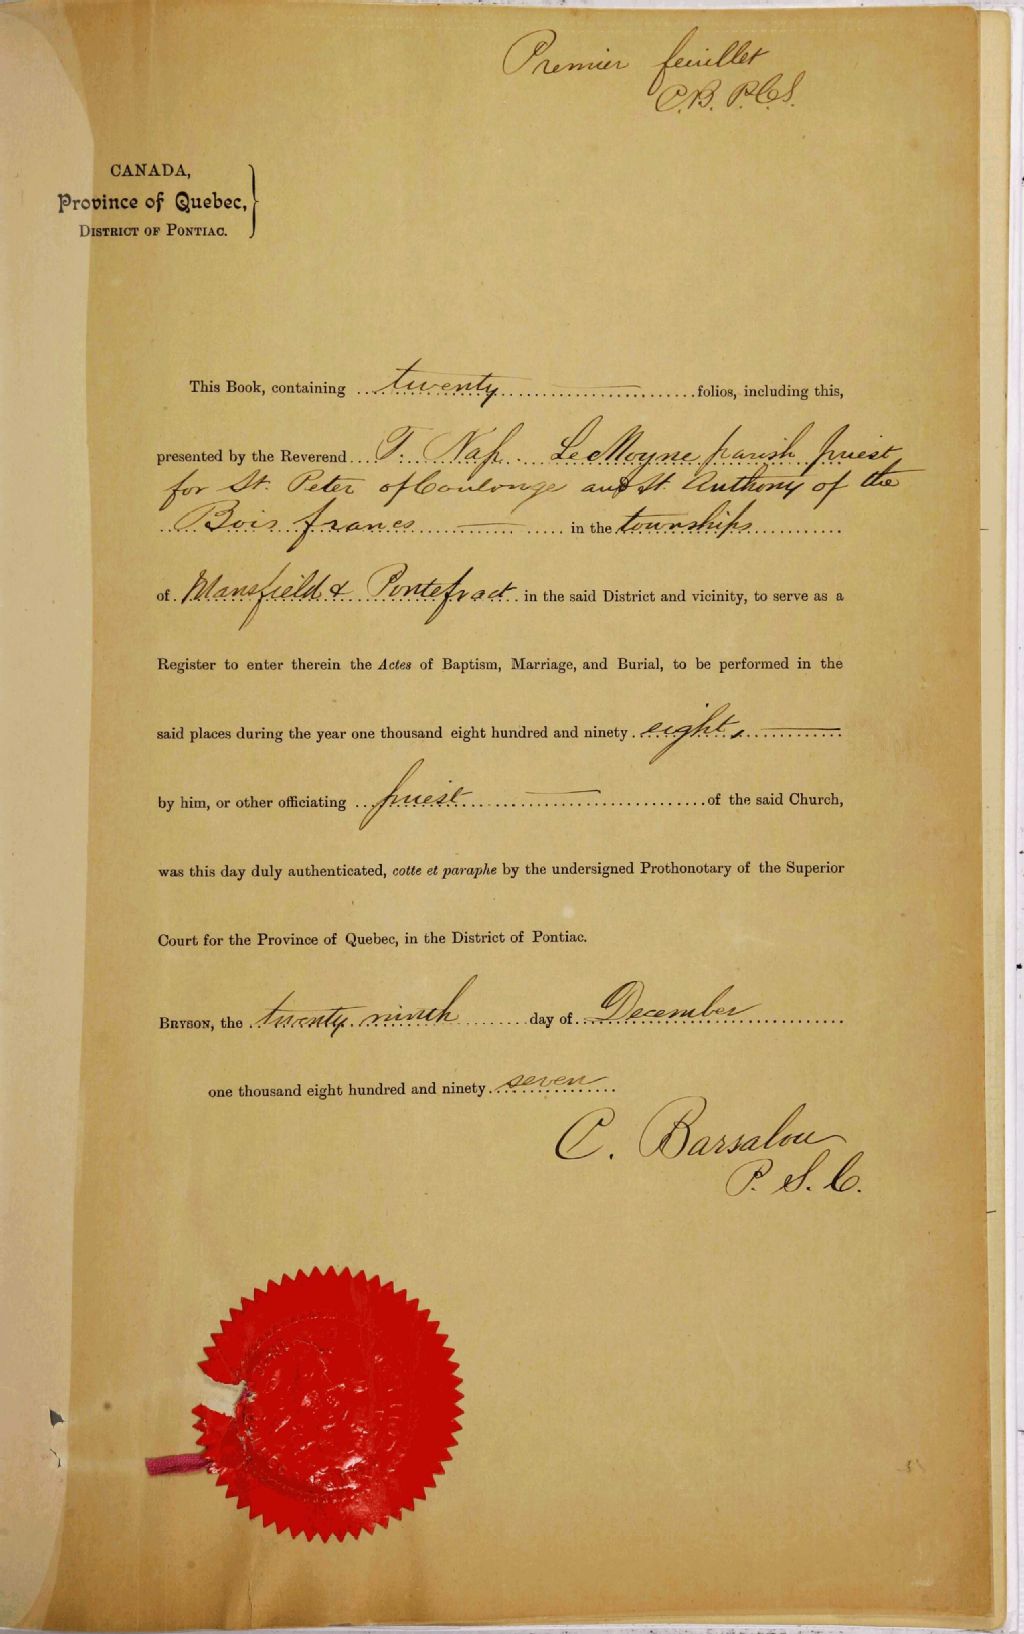 Premier feuillet
C.B. P.C.S.
CANADA,
Province of Quebec,
DISTRICT OF PONTIAC.
This Book, containing twenty folios, including this,
presented by the Reverend T. Nap. LeMoyne parish priest
for St. Peter of Coulonge and St. Anthony of the
Bois francs in the townships
of Mansfield & Pontefract in the said District and vicinity, to serve as a
Register to enter therein the Actes of Baptism, Marriage, and Burial, to be performed in the
said places during the year one thousand eight hundred and ninety eight,
by him, or other officiating priest of the said Church,
was this day duly authenticated, cotte et paraphe by the undersigned Prothonotary of the Superior
Court for the Province of Quebec, in the District of Pontiac.
BRYSON, the twenty ninth day of December
one thousand eight hundred and ninety seven
C. Barsalou
P. S. C.